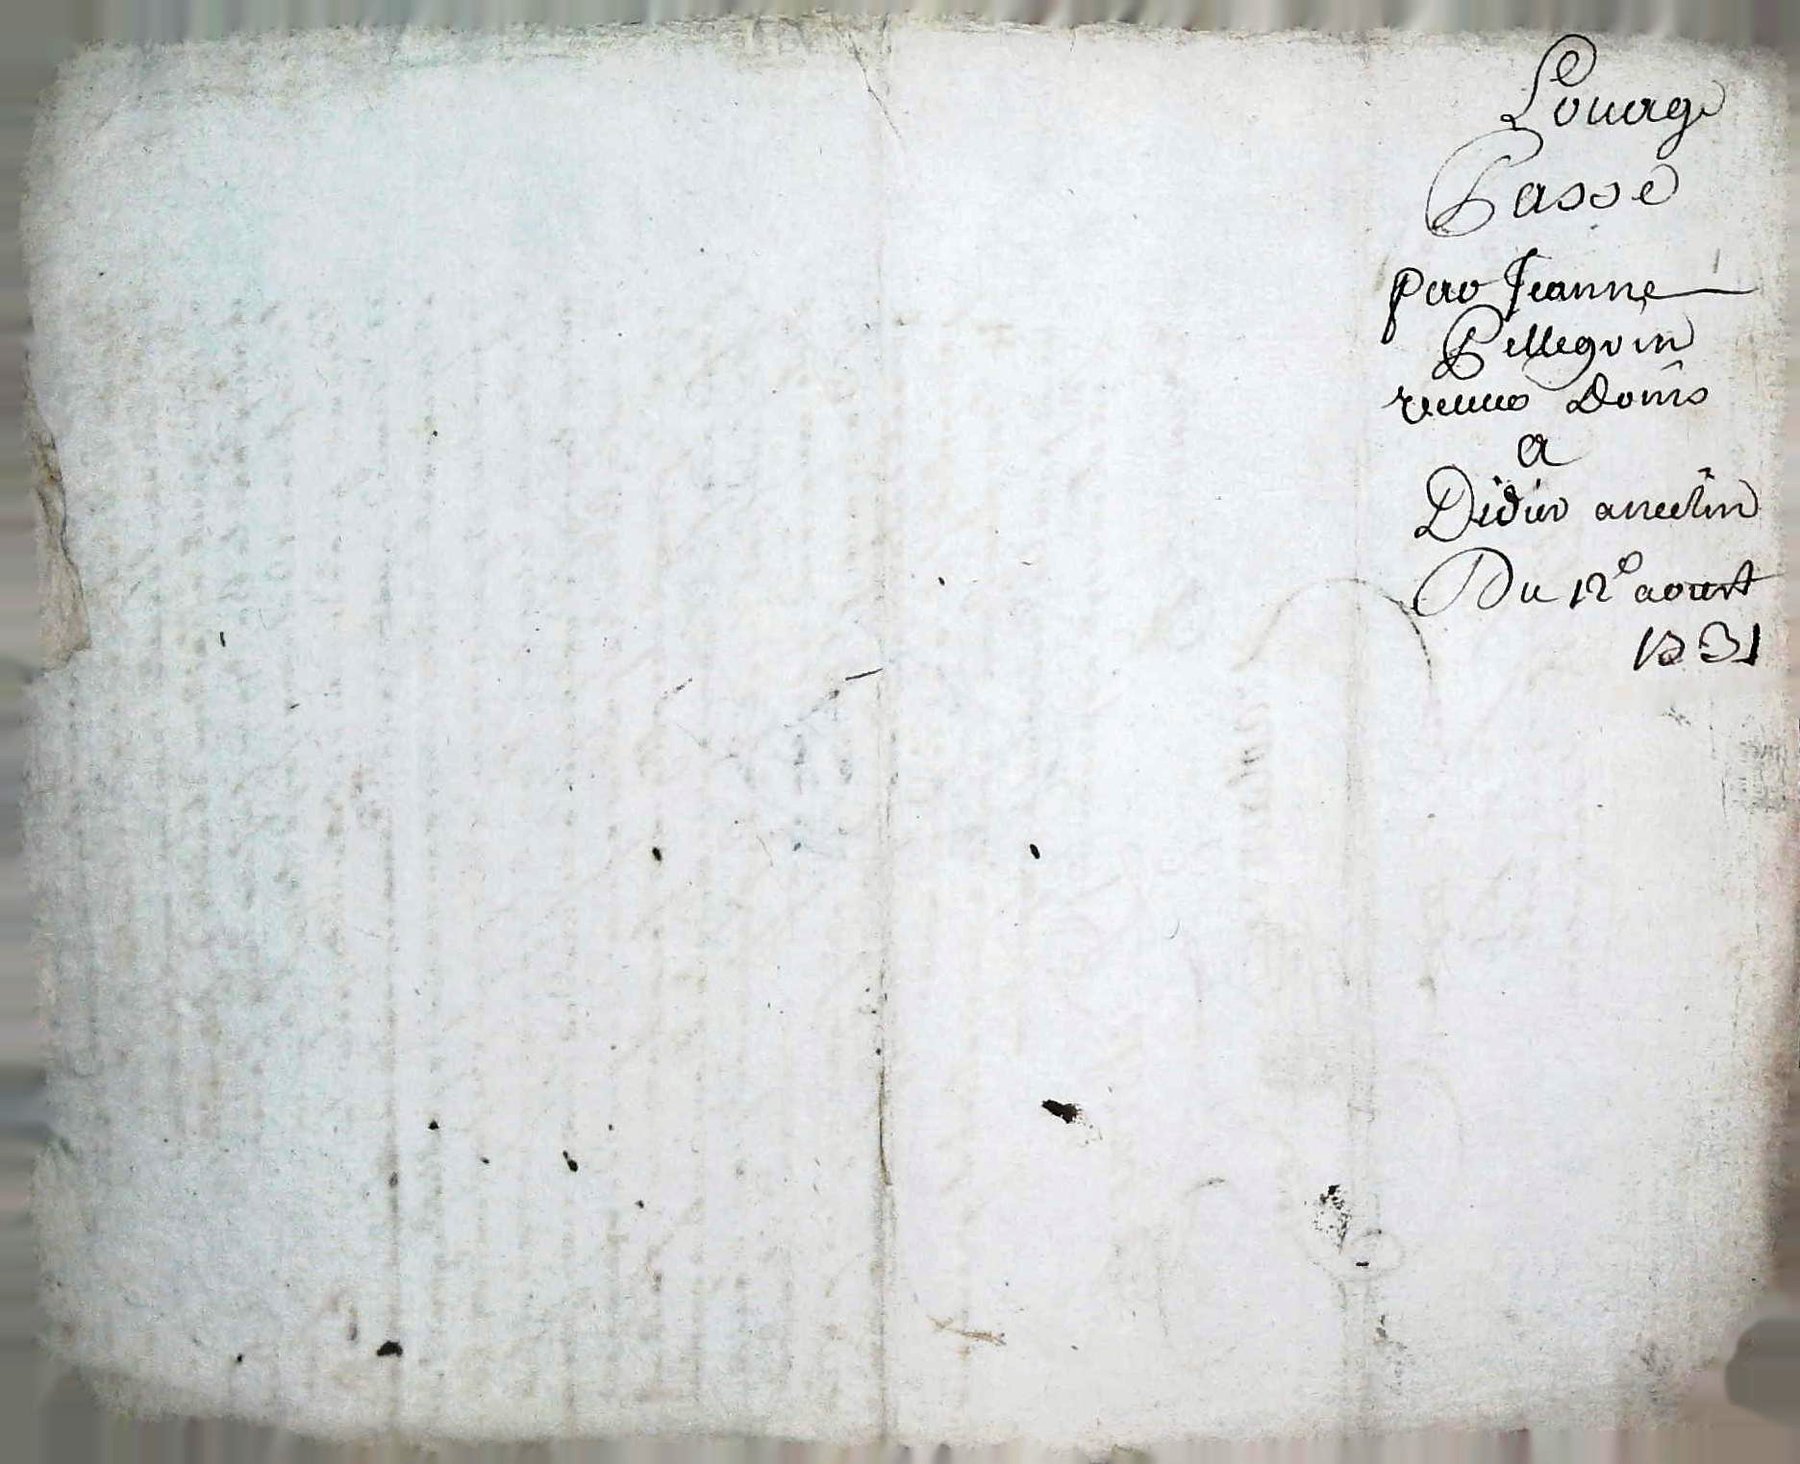 Louage
Passé
par Jeanne
Pellegrin
veuve Doms
a
Didier ancelin
Du 12e aoust
1731